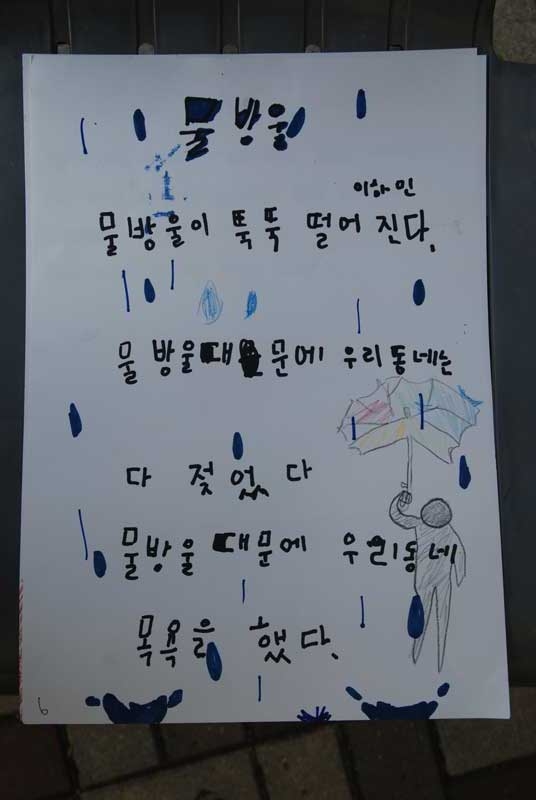 물방울
이하민
물방울이 뚝뚝 떨어 진다.
물방울 대문에 우리동네는
다 젖었다
물방울 대문에 우리동네
목욕을 했다.
6